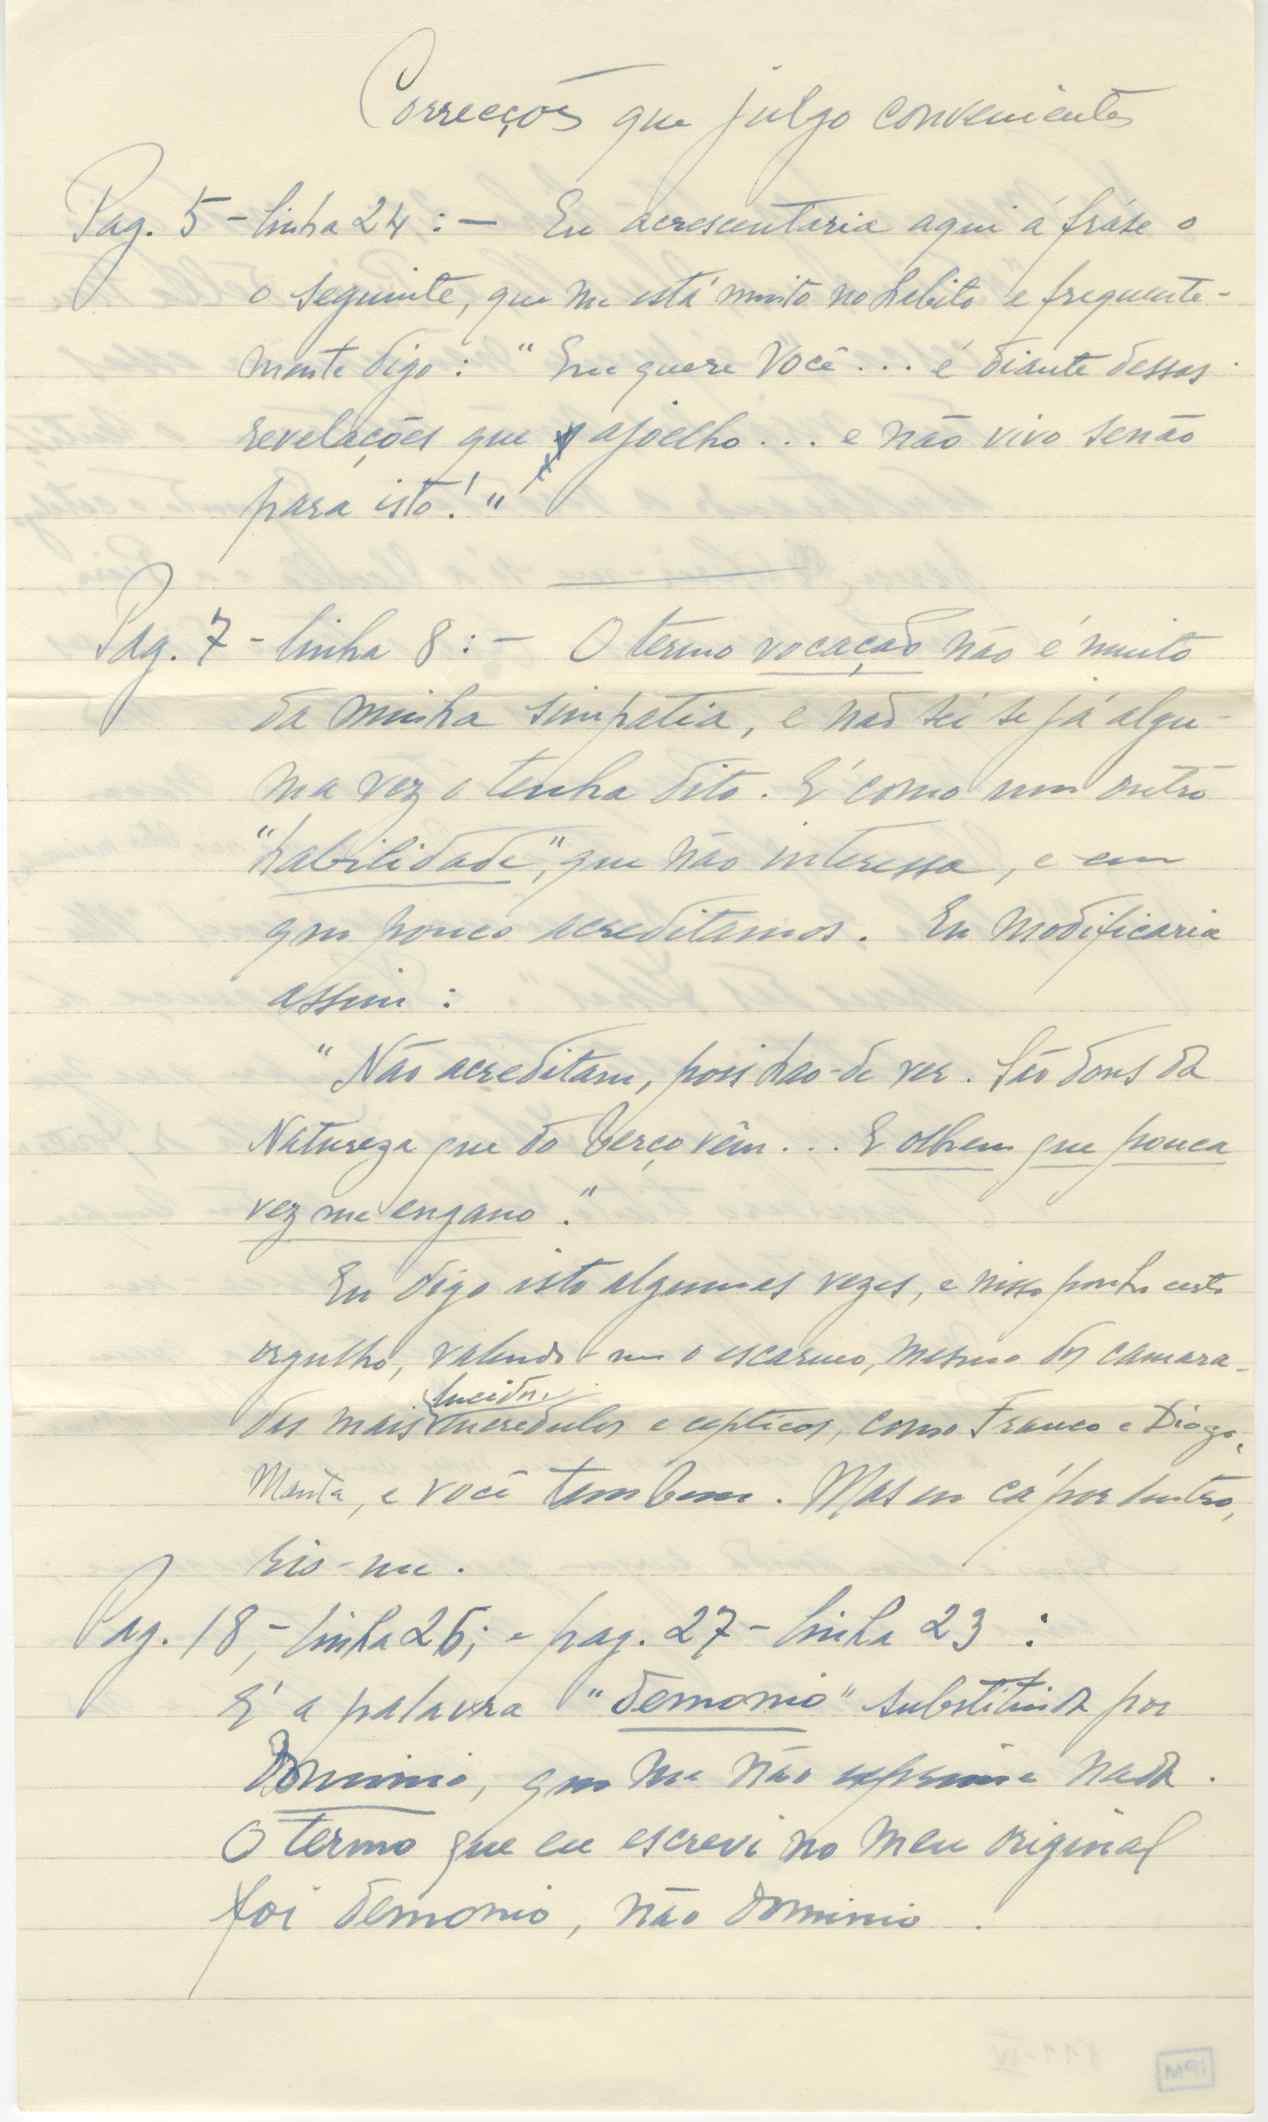 Correcções que julgo convenientes
Pag. 5 - linha 24 : — Eu acrescentaria aqui á fráse o
o seguinte, que me está muito no habito e frequente-
mente digo : " Que quere Você ... é diante dessas
revelações que ajoelho ... e não vivo senão
para isto ! "
Pag. 7 - linha 8 : — O termo vocação não é muito
da minha simpatia, e não sei se já algu-
ma vez o tenha dito. É como um outro
"habilidade", que não interessa, e em
que pouco acreditamos. Eu modificaria
assim :
" Não acreditam, pois hao-de ver. São dons da
Natureza que do berço vêm ... E olhem que pouca
vez me engano ."
Eu digo isto algumas vezes, e nisso ponho certo
orgulho, valendo-me o escarneo, mesmo dos camara-
lucidos,
das mais incredulos e cepticos, como Franco e Diogo,
Manta, e você tambem. Mas eu cá por dentro,
rio-me .
Pag. 18, - linha 26; e pag. 27 - linha 23 :
É a palavra "demonio" substituida por
Dominio, que me não exprime nada .
O termo que eu escrevi no meu original
foi demonio, não dominio .
IPM